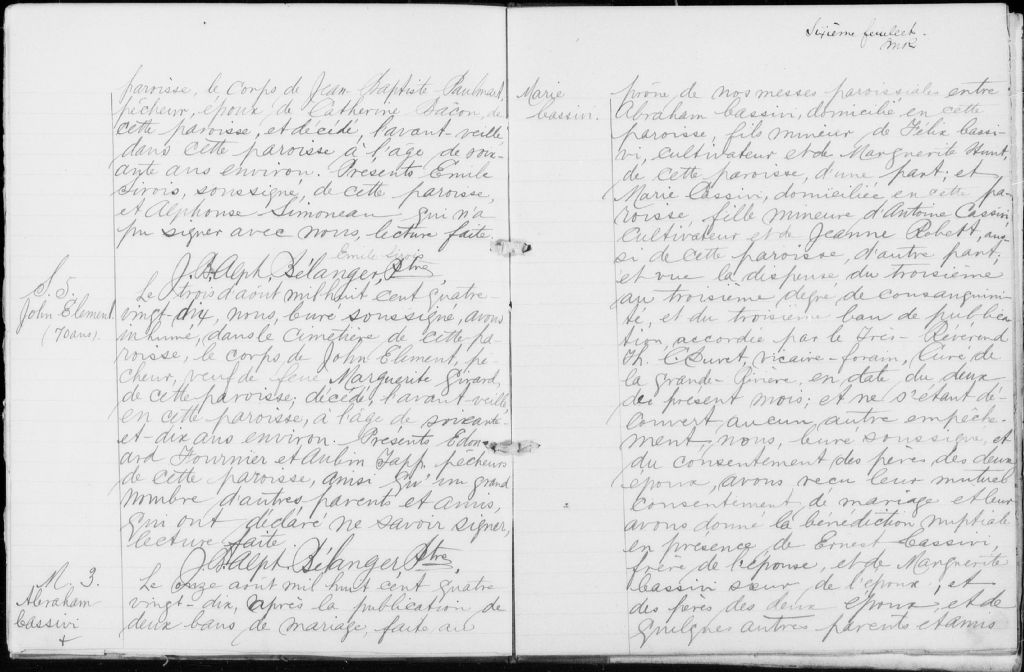 paroisse, le corps de Jean Baptiste Paulmert,
pêcheur, époux de Catherine Dâcon, de
cette paroisse, et décédé, l'avant-veille
dans cette paroisse à l'âge de soix-
ante ans environ. Présents Emile
Sirois, soussigné, de cette paroisse,
et Alphonse Simoneau qui n'a
pu signer avec nous, lecture faite.
Emile Sirois
J. B. Alph. Bélanger, Ptre
S. 5.
John Element
(70 ans).
Le trois d'août mil huit cent quatre-
vingt-dix, nous, curé soussigné, avons
inhumé, dans le cimetière de cette pa-
roisse, le corps de John Element, pê-
cheur, veuf de feue Marguerite Girard,
de cette paroisse; décédé, l'avant-veille,
en cette paroisse, à l'âge de soixante-
et-dix ans environ. Présents Edou-
ard Fournier et Aubin Tapp, pêcheurs
de cette paroisse, ainsi qu'un grand
nombre d'autres parents et amis,
qui ont déclaré ne savoir signer,
lecture faite.
J. B. Alph. Bélanger, Ptre
M. 3.
Abraham
Cassivi
+
Le onze août mil huit cent quatre
vingt-dix, après la publication de
deux bans de mariage, faite au
Sixième feuillet.
Marie
Cassivi.
prône de nos messes paroissiales entre
Abraham Cassivi, domicilié en cette
paroisse, fils mineur de Félix Cassi-
vi, cultivateur et de Marguerite Hunt,
de cette paroisse, d'une part; et
Marie Cassivi, domiciliée en cette pa-
roisse, fille mineure d'Antoine Cassivi,
cultivateur et de Jeanne Robett, aus-
si de cette paroisse, d'autre part;
et vue la dispense du troisième
au troisième degré de consanguini-
té, et du troisième ban de publica-
tion, accordée par le Très-Révérend
Th. C. Duret, vicaire-forain, Curé de
la Grande-Rivière, en date du deux
du présent mois; et ne s'étant dé-
couvert aucun autre empêche-
ment, nous, curé soussigné, et
du consentement des pères des deux
époux, avons reçu leur mutuel
consentement de mariage et leur
avons donné la bénédiction nuptiale
en présence de Ernest Cassivi,
frère de l'épouse, et de Marguerite
Cassivi sœur de l'époux, et
des pères des deux époux, et de
quelques autres parents et amis